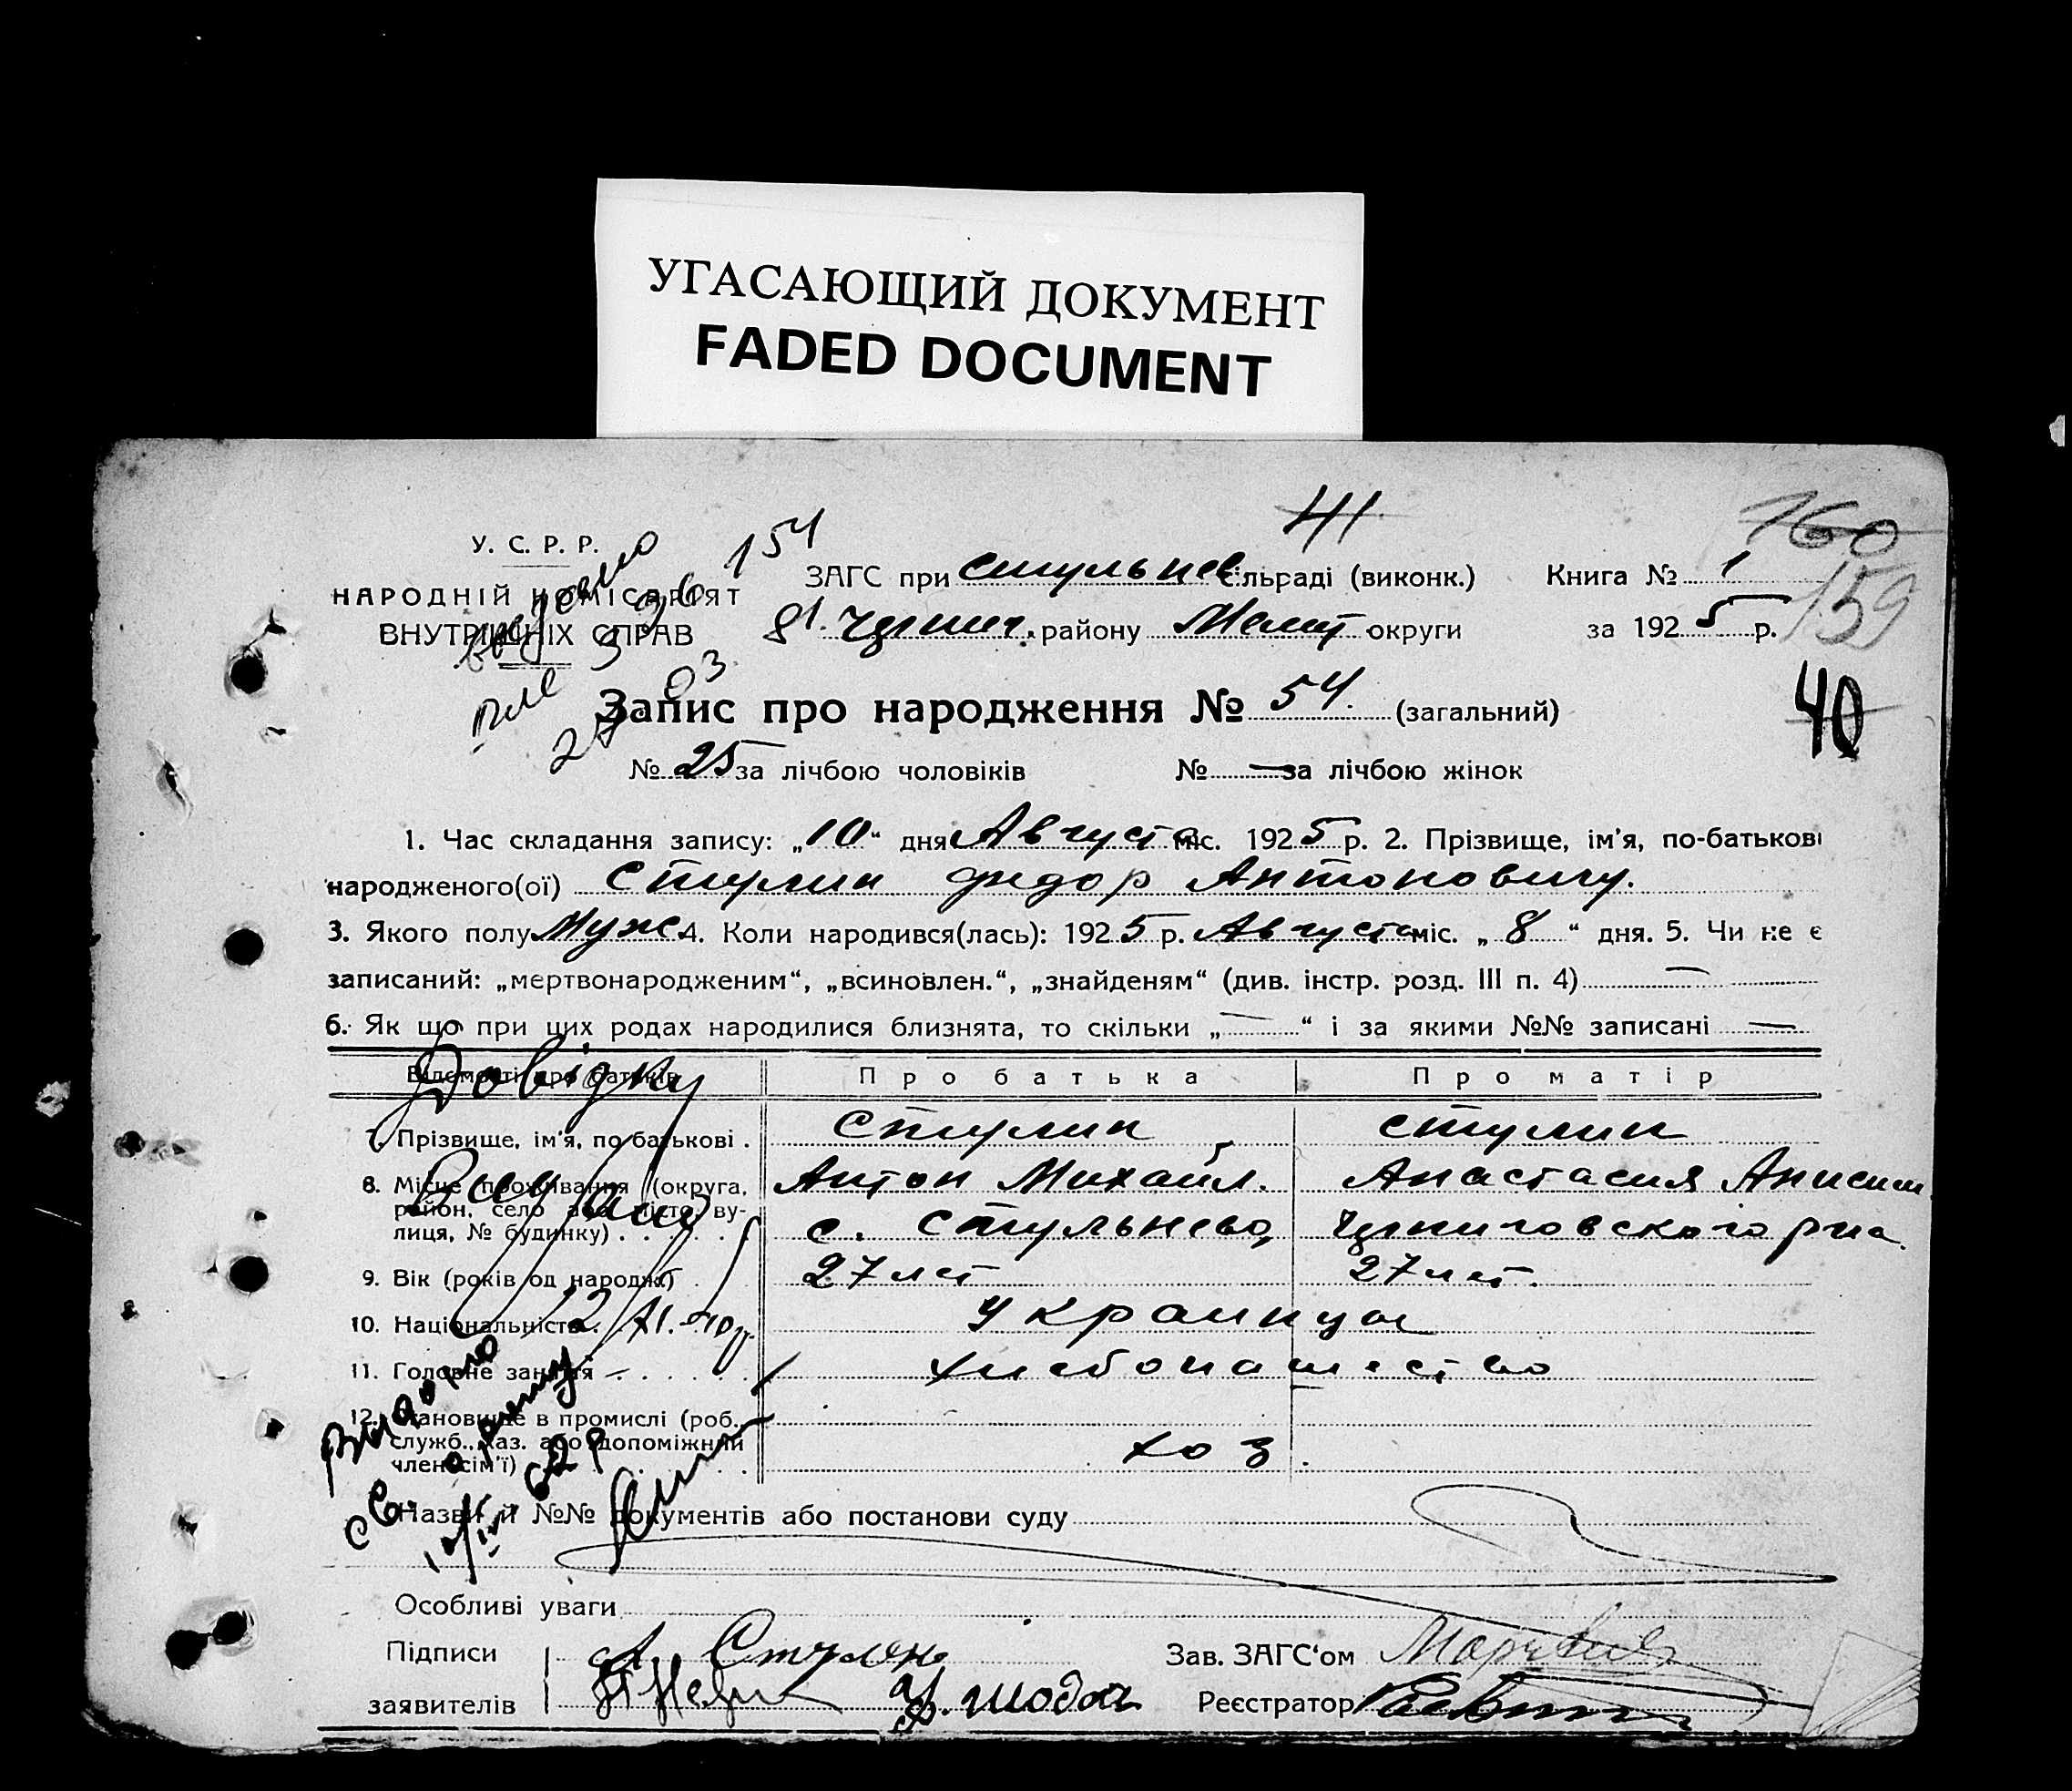 УГАСАЮЩИЙ ДОКУМЕНТ
FADED DOCUMENT
41
160
159
40
154
У. С. Р. Р.
НАРОДНІЙ КОМІСАРІЯТ
ВНУТРІШНІХ СПРАВ
ЗАГС при Стульнев. сільраді (виконк.) Книга № 1
району Мелит округи за 1925 р.
Запис про народження № 54. (загальний)
№ 25 за лічбою чоловіків № — за лічбою жінок
1. Час складання запису: „10" дня Августа міс. 1925 р. 2. Прізвище, ім'я, по-батькові
народженого(ої) Стулин Фидор Антоновичу.
3. Якого полу Муж. 4. Коли народився(лась): 1925 р. Августа міс. „8" дня. 5. Чи не є
записаний: „мертвонародженим", „всиновлен.", „знайденям" (див. інстр. розд. III п. 4) —
6. Як що при цих родах народилися близнята, то скільки „—" і за якими №№ записані —
Відомості про батьків Про батька Про матір
Довідку
7. Прізвище, ім'я, по батькові . Стулин Стулин
8. Місце проживання (округа, Антон Михайл. Анастасия Анисим
район, село або місто, ву-
лиця, № будинку) . . . . . . с. Стульнево, Черниговского р-на.
9. Вік (років од народж.) . 27 лет 27 лет.
10. Національність . Украинцы
11. Головне заняття . . . . . . Хлебопашество
12. Становище в промислі (роб.,
служб., хаз. або допоміжний
член сім'ї) хоз.
Назви й №№ документів або постанови суду
Особливі уваги
Підписи А Стулин Зав. ЗАГС'ом
заявителів Реєстратор